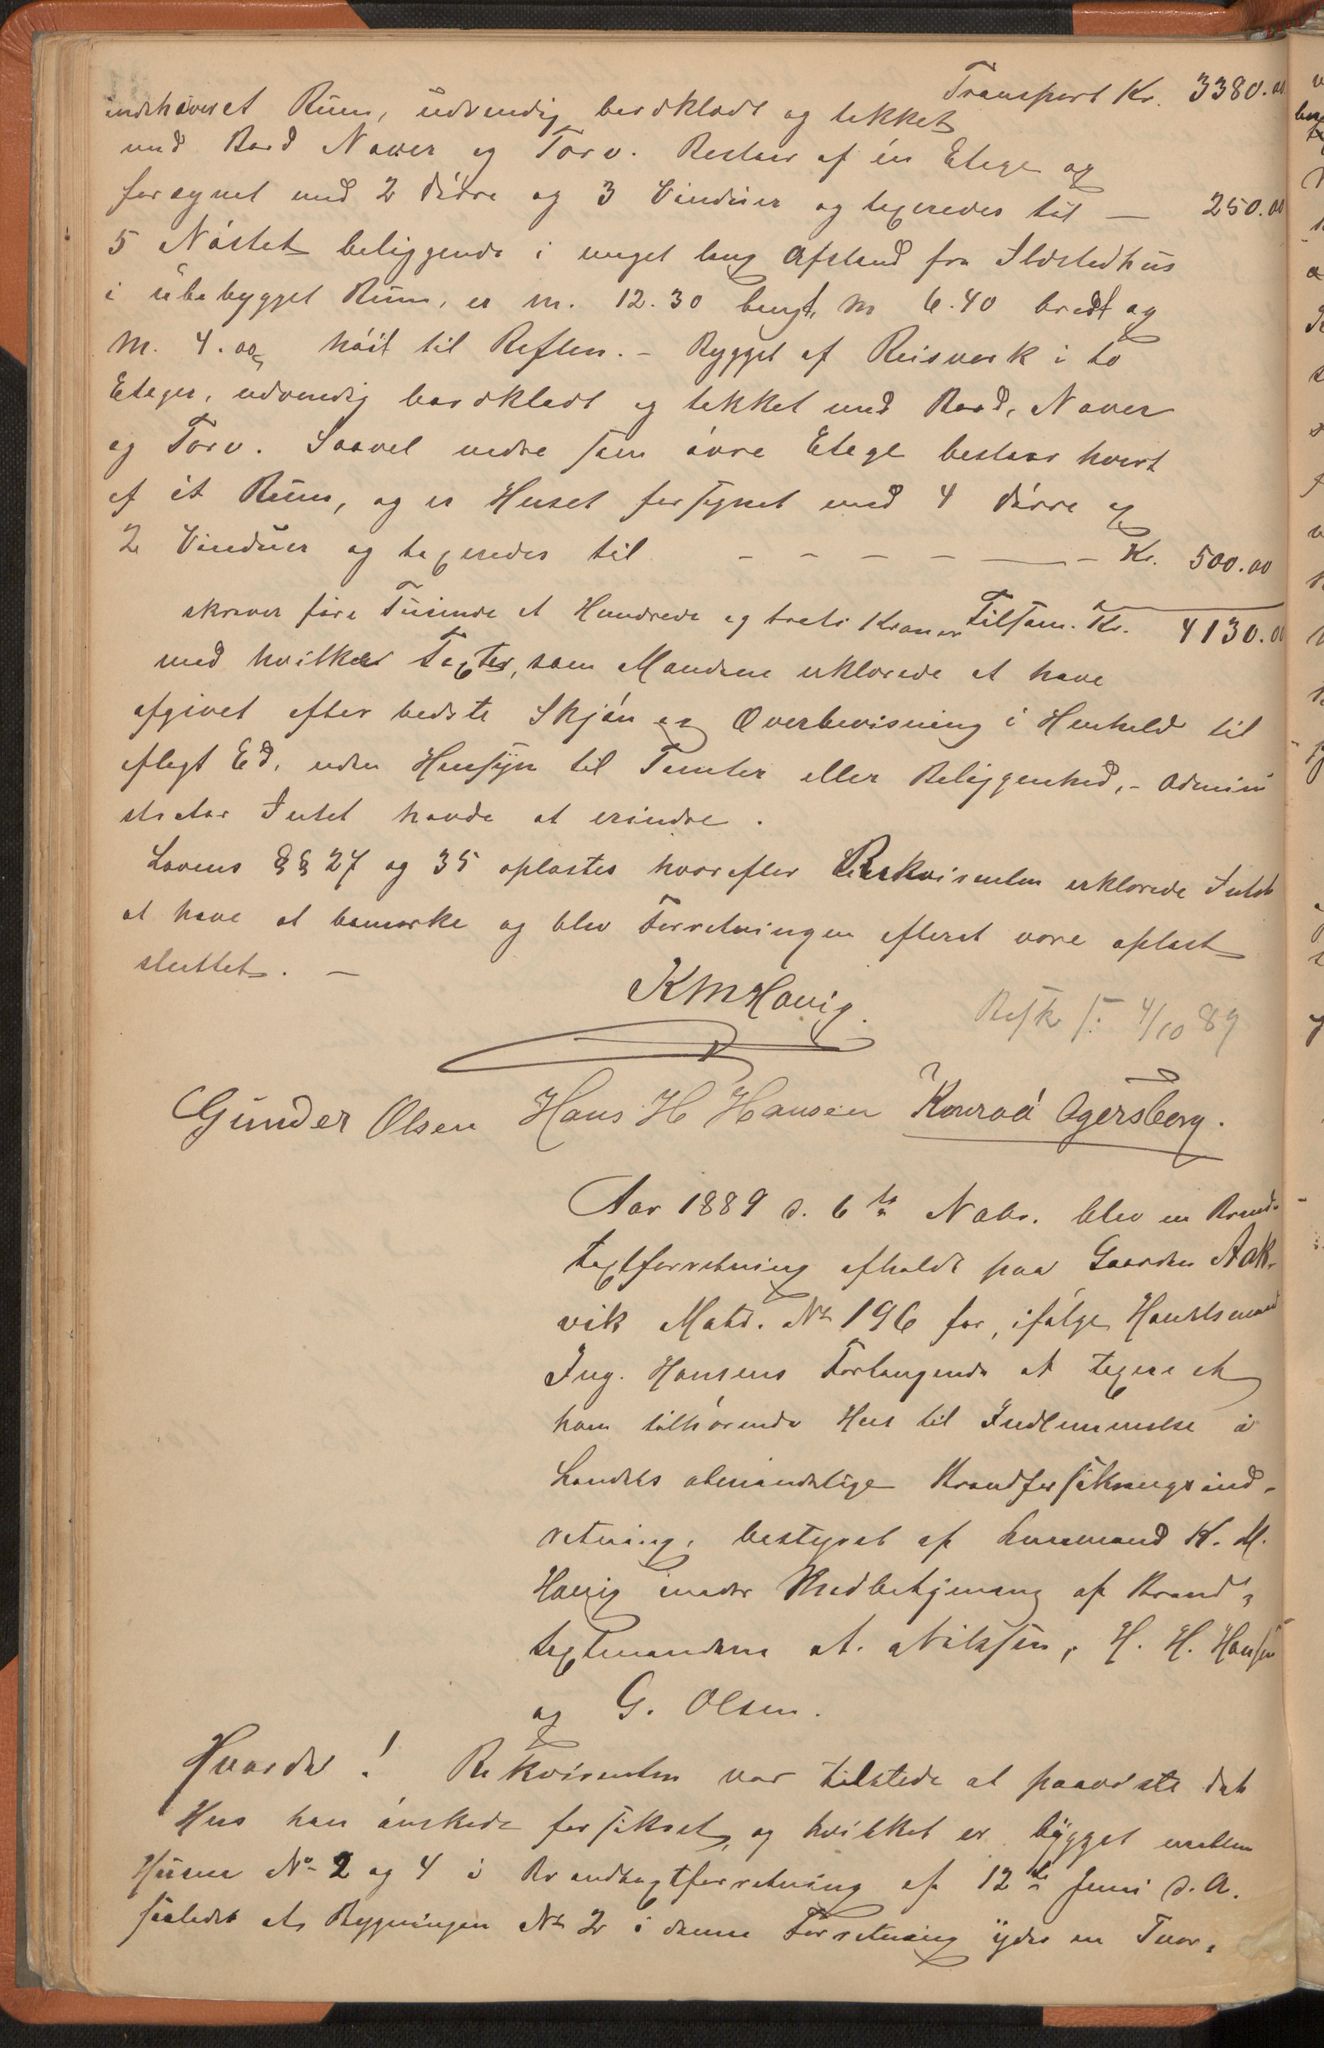 Transport Kr. 3380.00
indehaveret Rum, udvendig bordklædt og tekket
med Bord Næver og Torv. Bestaar af én Etage og
forsynet med 2 Dörre og 3 Vinduer og taxeredes til — 250.00
5 Nöstet beliggende i meget lang Afstand fra Ildstedhus
i ubebygget Rum, er m. 12.30 langt, m 6.40 bredt og
M. 4.00 höit til Raften. – Bygget af Reisverk i to
Etager, udvendig bordklædt og tekket med Bord, Næver
og Torv. Saavel nedre som övre Etage bestaar hvert
af ét Rum, og er Huset forsynet med 4 Dörre og
2 Vinduer og taxeredes til – – – – — – Kr. 500.00
Tilsam. Kr. 4130.00
skriver fire Tusinde et Hundrede og treti Kroner
med hvilken Taxter, som Mændene erklærede at have
afgivet efter bedste Skjön og Overbevisning i Henhold til
aflagt Ed, uden Hensyn til Tomter eller Beliggenhed, – Admini
strator Intet havde at erindre.
Lovens §§ 27 og 35 oplæstes hvorefter Rekvirenten erklærede Intet
at have at bemærke og blev Forretningen efterat være oplæst
sluttet. —
KMHavig.
Besk f. 4/10 89
Gunder Olsen Hans H Hansen Konrad Agersborg.
Aar 1889 d. 6te Nobr. blev en Brand-
taxtforretning afholdt paa Gaarden Aak-
vik Matr. No 196 for, ifölge Handelsmand
Ing. Hansens Forlangende at taxere et
ham tilhörende Hus til Indlemmelse i
Landets almindelige Brandforsikringsind-
retning, bestyret af Lensmand K. M.
Havig under Medbetjening af Brand-
taxtmændene A. Nilssen, H. H. Hansen
og G. Olsen.
Hvorda! Rekvirenten var tilstede at paaviste det
Hus han önskede forsikret, og hvilket er bygget mellem
Husene No 2 og 4 i Brandtaxtforretning af 12te Juni d. A.
saaledes at Bygningen No 2 i denne Forretning yder en Tvær-